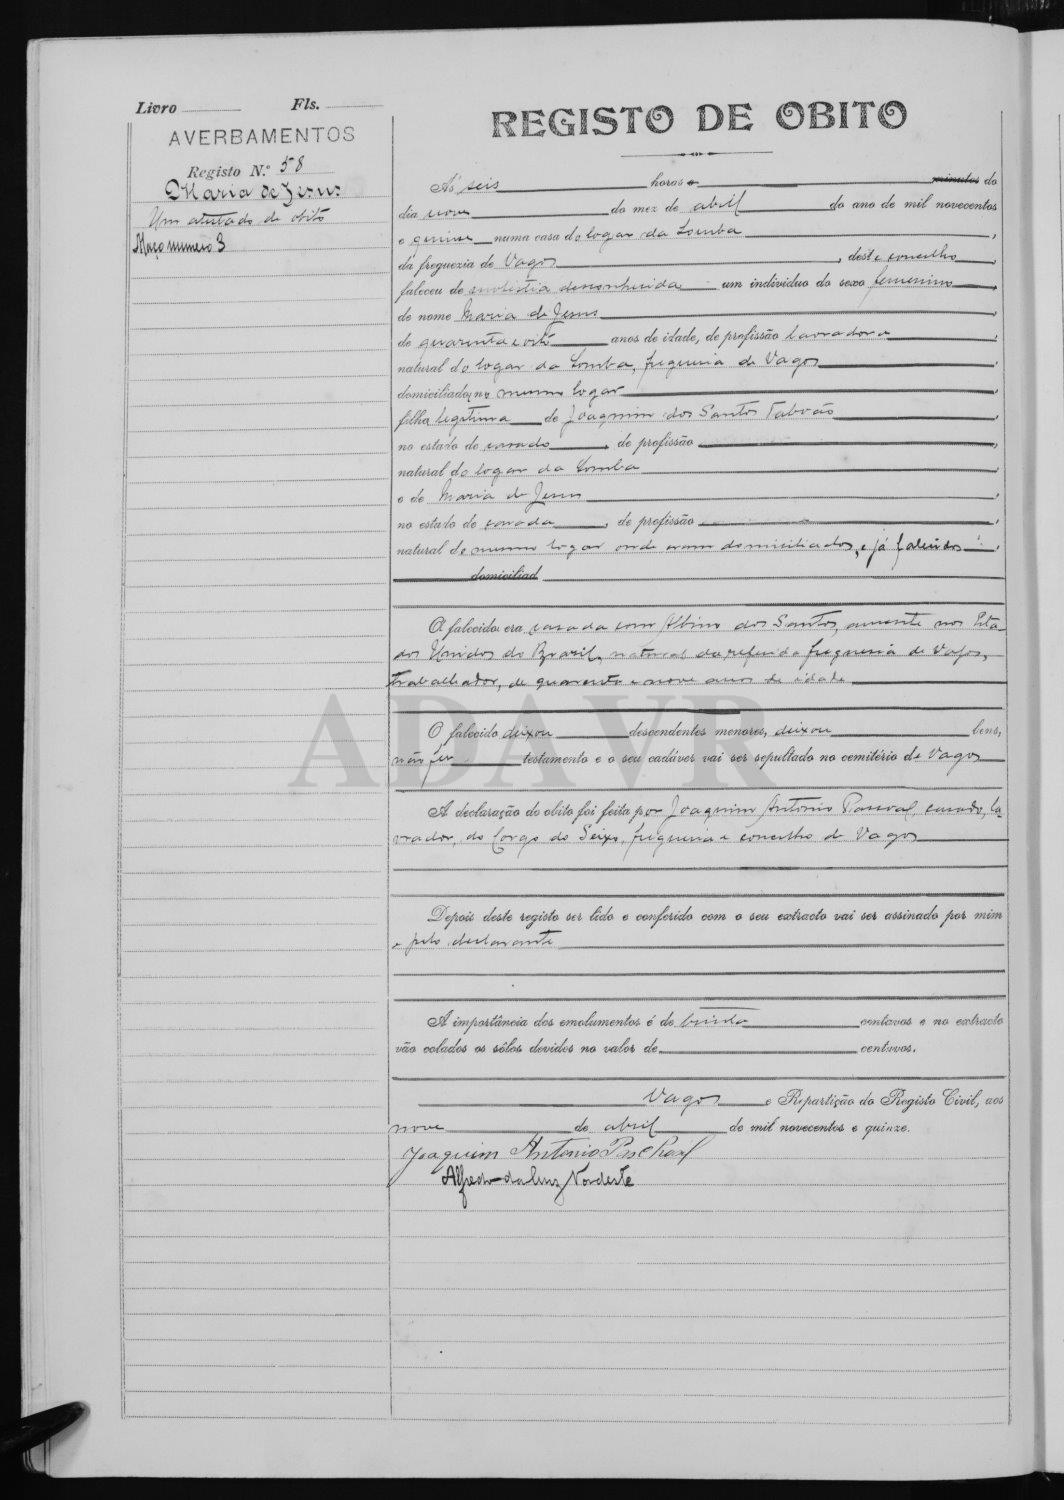 Livro Fls.
AVERBAMENTOS
Registo N.º 58
Maria de Jesus
Um atestado de obito
Maço numero 3
REGISTO DE OBITO
Ás seis horas e minutos do
dia nove do mez de abril do ano de mil novecentos
e quinze numa casa do logar da Lomba,
da freguezia de Vagos, deste concelho,
faleceu de molestia desconhecida um individuo do sexo femenino,
de nome Maria de Jesus,
de quarenta e oito anos de idade, de profissão lavradora,
natural do logar da Lomba, freguesia de Vagos,
domiciliado no mesmo logar,
filha legitima de Joaquim dos Santos Taboão,
no estado de casado, de profissão,
natural do logar da Lomba,
e de Maria de Jesus,
no estado de casada, de profissão,
natural do mesmo logar onde eram domiciliados, e já falecidos,
domiciliad
A falecida era casada com Albino dos Santos, ausente nos Esta-
dos Unidos do Brazil, natural da referida freguesia de Vagos,
trabalhador, de quarenta e nove anos de idade
ADAVR
O falecido deixou descendentes menores, deixou bens,
não fez testamento e o seu cadáver vai ser sepultado no cemitério de Vagos
A declaração do obito foi feita por Joaquim Antonio Pascoal, casado, la-
vrador, do Corgo do Seixo, freguesia e concelho de Vagos
Depois deste registo ser lido e conferido com o seu extracto vai ser assinado por mim
e pelo declarante
A importância dos emolumentos é de trinta centavos e no extracto
vão colados os sêlos devidos no valor de centavos.
Vagos e Repartição do Registo Civil, aos
nove de abril de mil novecentos e quinze.
Joaquim Antonio Paschoal
Alfredo da Cruz Nordeste